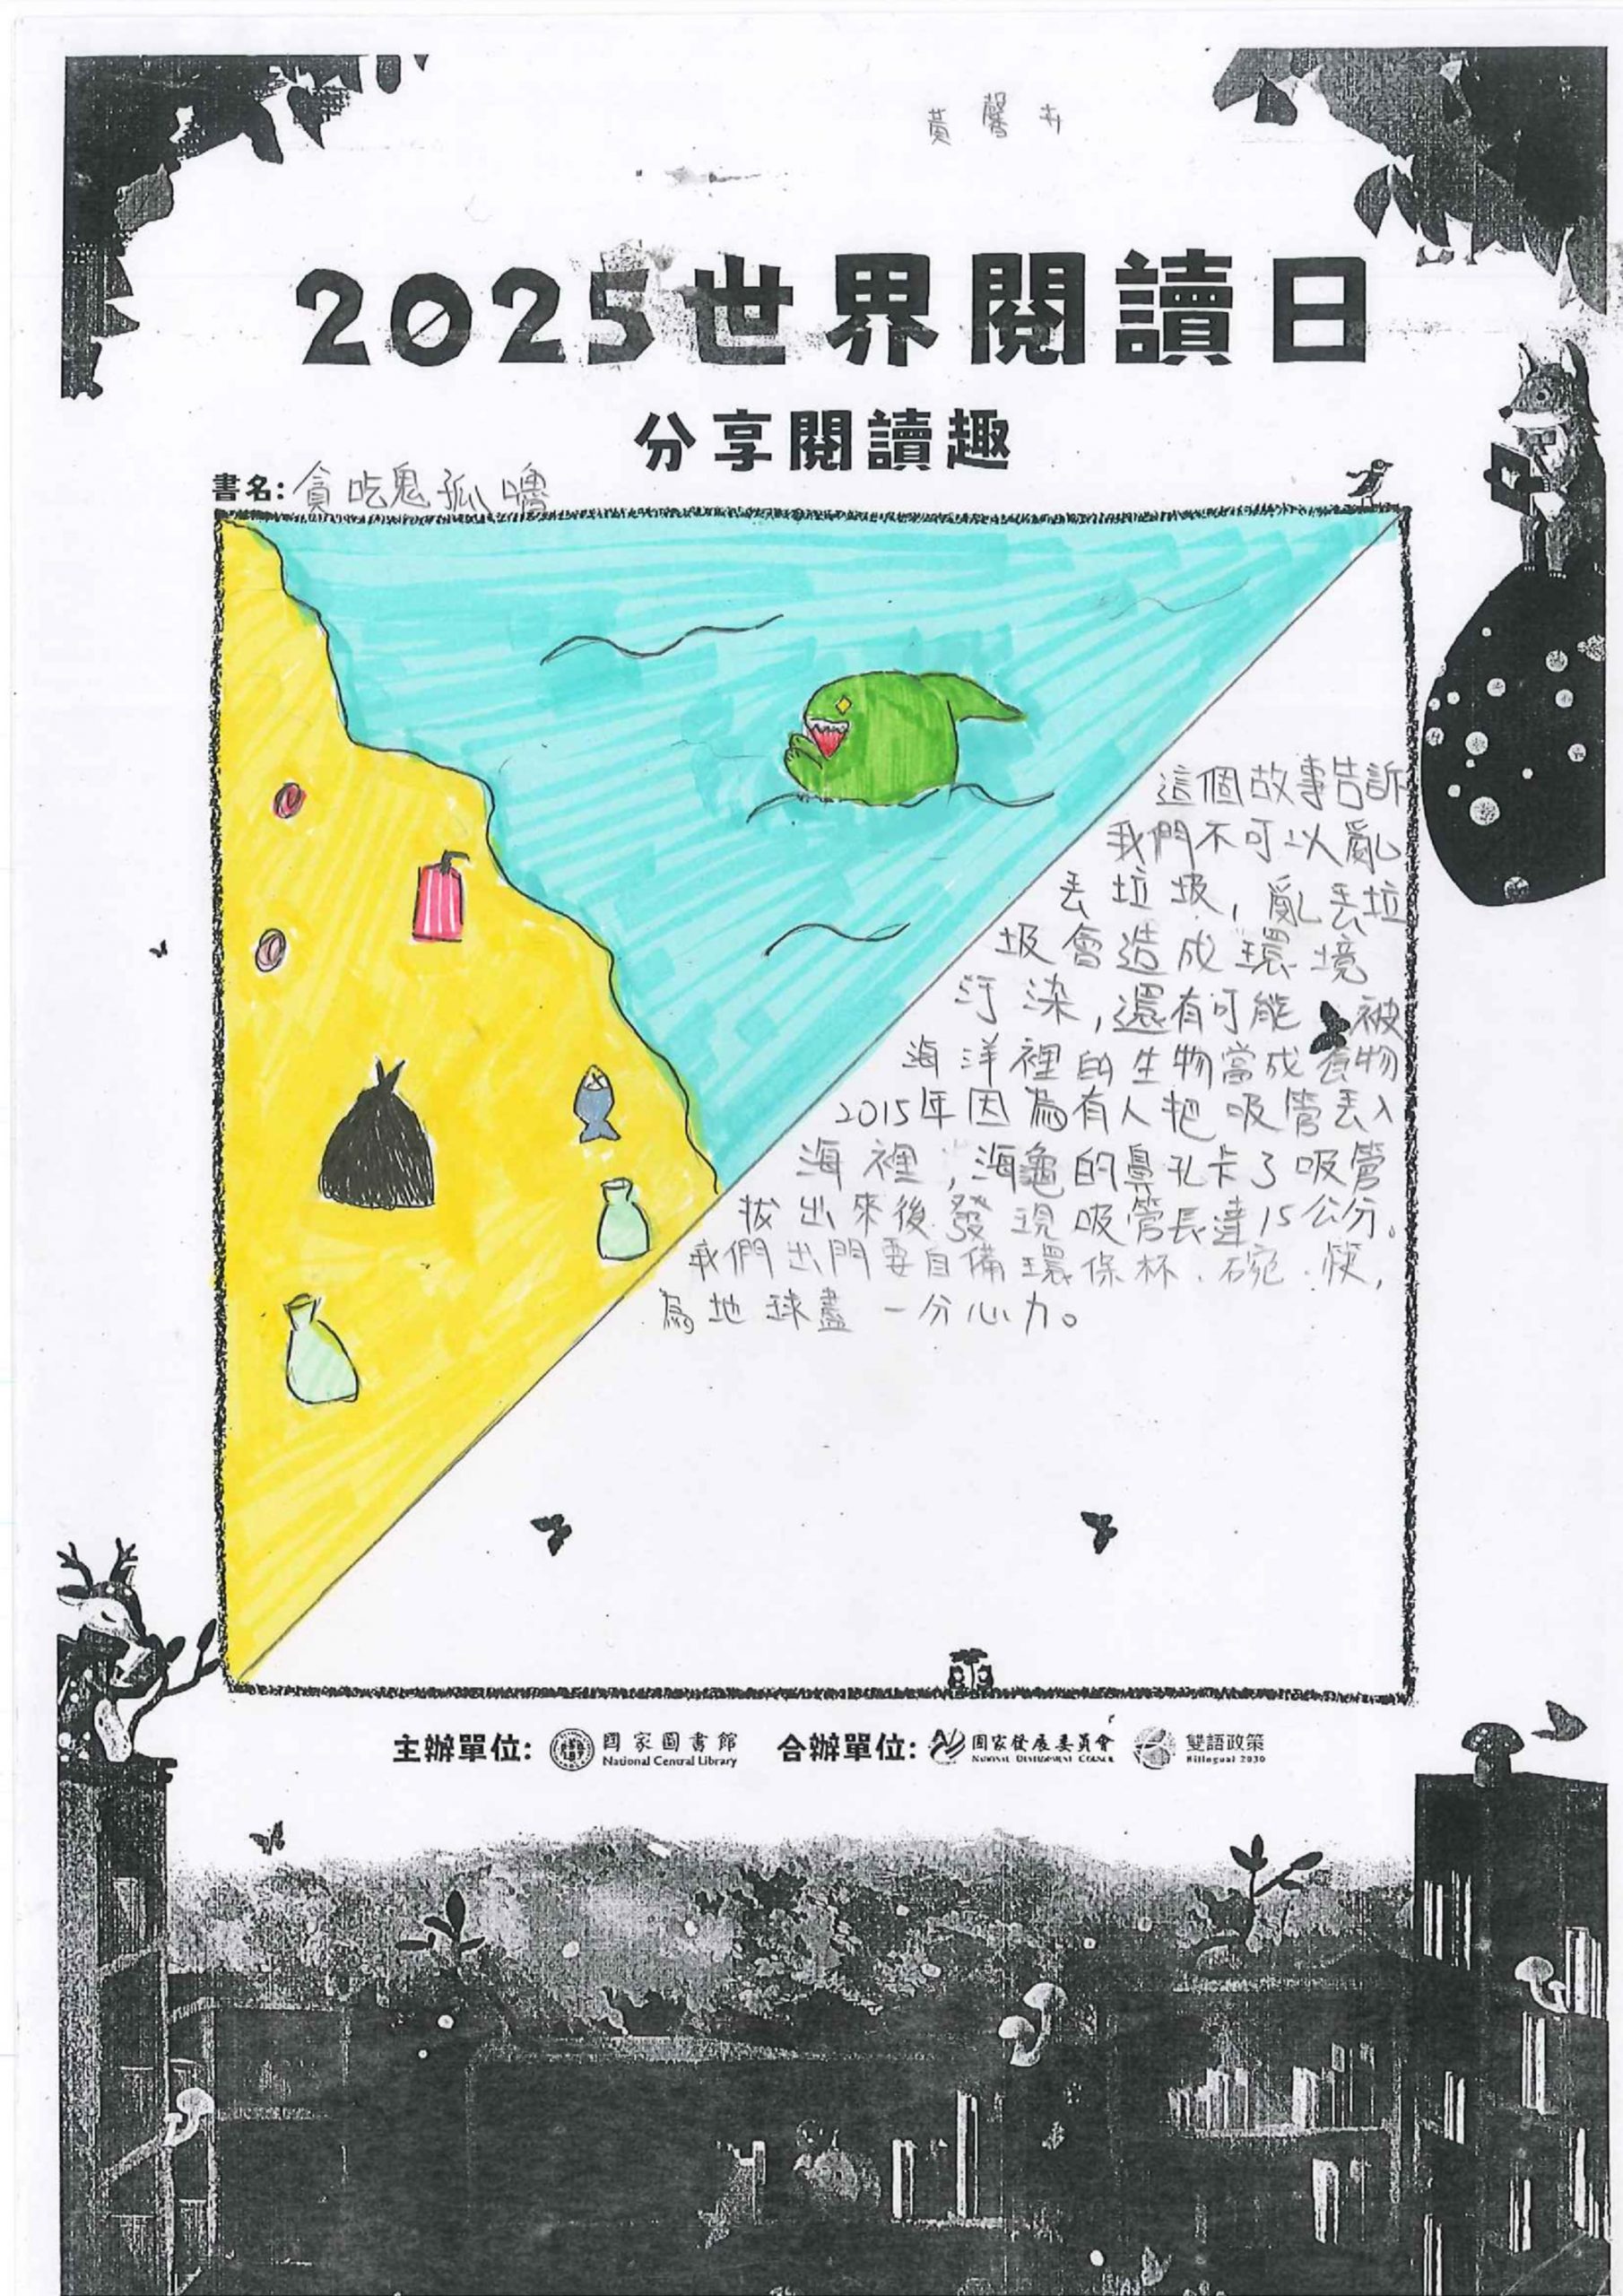 黃馨卉
2025世界閱讀日
分享閱讀趣
書名:貪吃鬼孤嚕
這個故事告訴
我們不可以亂
丟垃圾,亂丟垃
圾會造成環境
汙染,還有可能被
海洋裡的生物當成食物
2015年因為有人把吸管丟入
海裡,海龜的鼻孔卡了吸管
拔出來後發現吸管長達15公分。
我們出門要自備環保杯、碗、筷,
為地球盡一分心力。
主辦單位: 國家圖書館 National Central Library 合辦單位: 國家發展委員會 National Development Council 雙語政策 Bilingual 2030